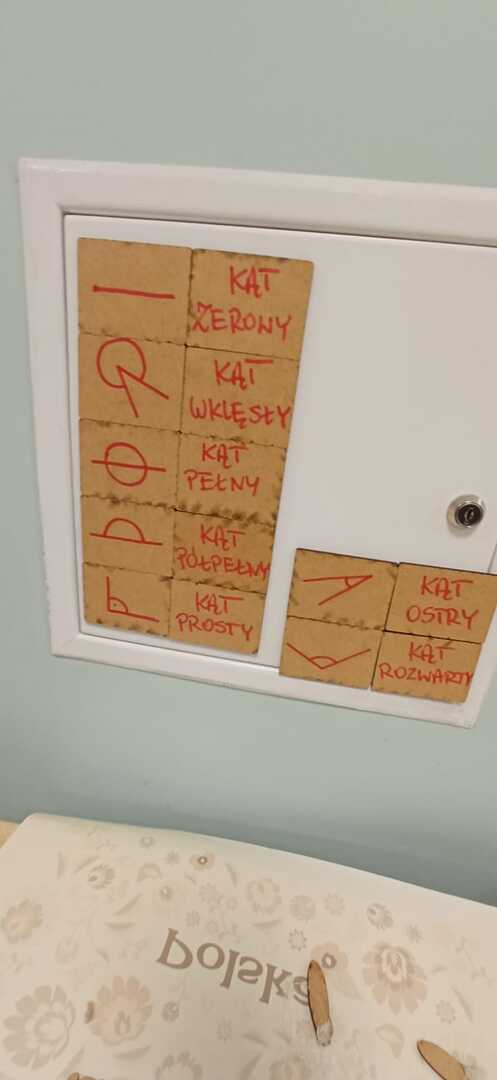 KĄT
ZEROWY
KĄT
WKLĘSŁY
KĄT
PEŁNY
KĄT
PÓŁPEŁNY
KĄT
PROSTY
KĄT
OSTRY
KĄT
ROZWARTY
Polska